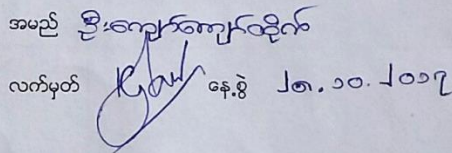 အမည် ဦးကျော်ကျော်ထိုက်
လက်မှတ် နေ့စွဲ ၂၈.၁၀.၂၀၁၇